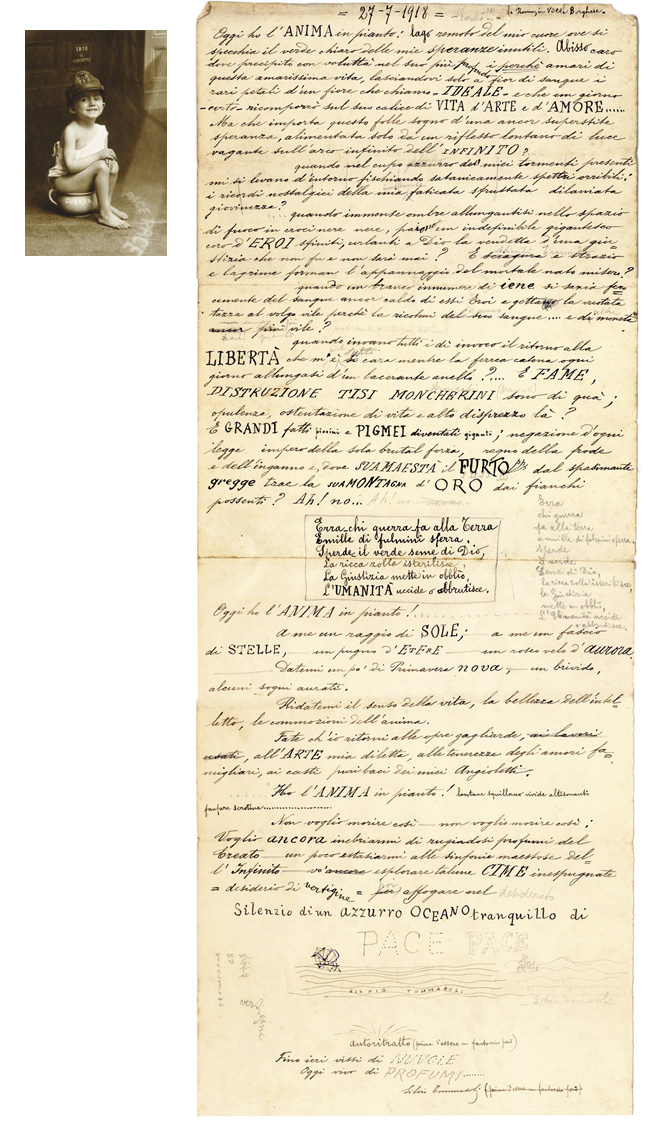 = 27-7-1918 =
Oggi ho l'ANIMA in pianto: lago remoto del mio cuore ove si
specchia il verde chiaro delle mie speranze inutili. Abisso caro
dove precipito con voluttà nel suo più profondo i perché amari di
questa amarissima vita, lasciandovi solo a fior di sangue i
rari petali d'un fiore che chiamo - IDEALE - e che un giorno
- certo - ricomporrò sul suo calice di VITA d'ARTE e d'AMORE......
Ma che importa questo folle sogno d'una ancor superstite
speranza, alimentata solo da un riflesso lontano di luce
vagante sull'arco infinito dell'INFINITO?
quando nel cupo azzurro dei miei tormenti presenti
mi si levano d'intorno fischiando satanicamente spettri orribili:
i ricordi nostalgici della mia faticata sfruttata dilaniata
giovinezza?
quando immense ombre allungantisi nello spazio
di fuoco in croci nere nere, paiono un indefinibile gigantesco
coro d'EROI sfiniti, urlanti a Dio la vendetta d'una giu=
stizia che non fu e non sarà mai? E sciagura e strazio
e lagrime forman l'appannaggio del mortale nato misero?
quando un branco innumere di iene si sazia fero
cemente del sangue ancor caldo di essi Eroi e gettano la vuotata
tazza al volgo vile perché la ricolmi del suo sangue .... e di monete
ancor più vile?
quando invano tutti i dì invoco il ritorno alla
LIBERTÀ che m'è sì cara mentre la ferrea catena ogni
giorno allungasi d'un lacerante anello?.... E FAME,
DISTRUZIONE TISI MONCHERINI sono di quà;
opulenza, ostentazione di vita e alto disprezzo là?
E GRANDI fatti piccini e PIGMEI diventati giganti; negazione d'ogni
legge impero della sola brutal forza, regno della frode
e dell'inganno e, dove SUA MAESTÀ il FURTO dal spasimante
gregge trae la SUA MONTAGNA d'ORO dai fianchi
possenti? Ah! no...
Erra chi guerra fa alla Terra
E mille di fulmini sferra.
Sperde il verde seme di Dio,
La ricca zolla isterilisce,
La Giustizia mette in obblio,
L'UMANITÀ uccide o abbrutisce.
Erra
chi guerra
fa alla terra
e mille di fulmini sferra.
Sperde
Seme di Dio,
la ricca zolla isterilisce,
la Giustizia
mette in obblio,
L'Umanità uccide
o abbrutisce.
Oggi ho l'ANIMA in pianto!
a me un raggio di SOLE; - a me un fascio
di STELLE, un pugno d'ETERE - un roseo velo d'aurora.
Datemi un po' di Primavera nova, un brivido,
alcuni sogni aurati.
Ridatemi il senso della vita, la bellezza dell'intel=
letto, le commozioni dell'anima.
Fate ch'io ritorni alle opre gagliarde, ai lavori
usati, all'ARTE mia diletta, alle tenerezze degli amori fa=
migliari, ai casti puri baci dei miei Angioletti.
Ho l'ANIMA in pianto! lontane squillano vivide altisonanti
fanfare serotine....
Non voglio morire così - non voglio morire così;
Voglio ancora inebriarmi di rugiadosi profumi del
Creato - un poco estasiarmi alle sinfonie maestose del=
l'Infinito - vo' ancora esplorare talune CIME inespugnate
= desiderio di vertigine = affogare nel desiderato
Silenzio di un azzurro OCEANO tranquillo di
PACE PACE
SILVIO TOMMASOLI
vertigine
autoritratto (prima d'essere un fantoccio più)
Fino ieri vissi di NUVOLE
Oggi vivo di PROFUMI......
Silvio Tommasoli